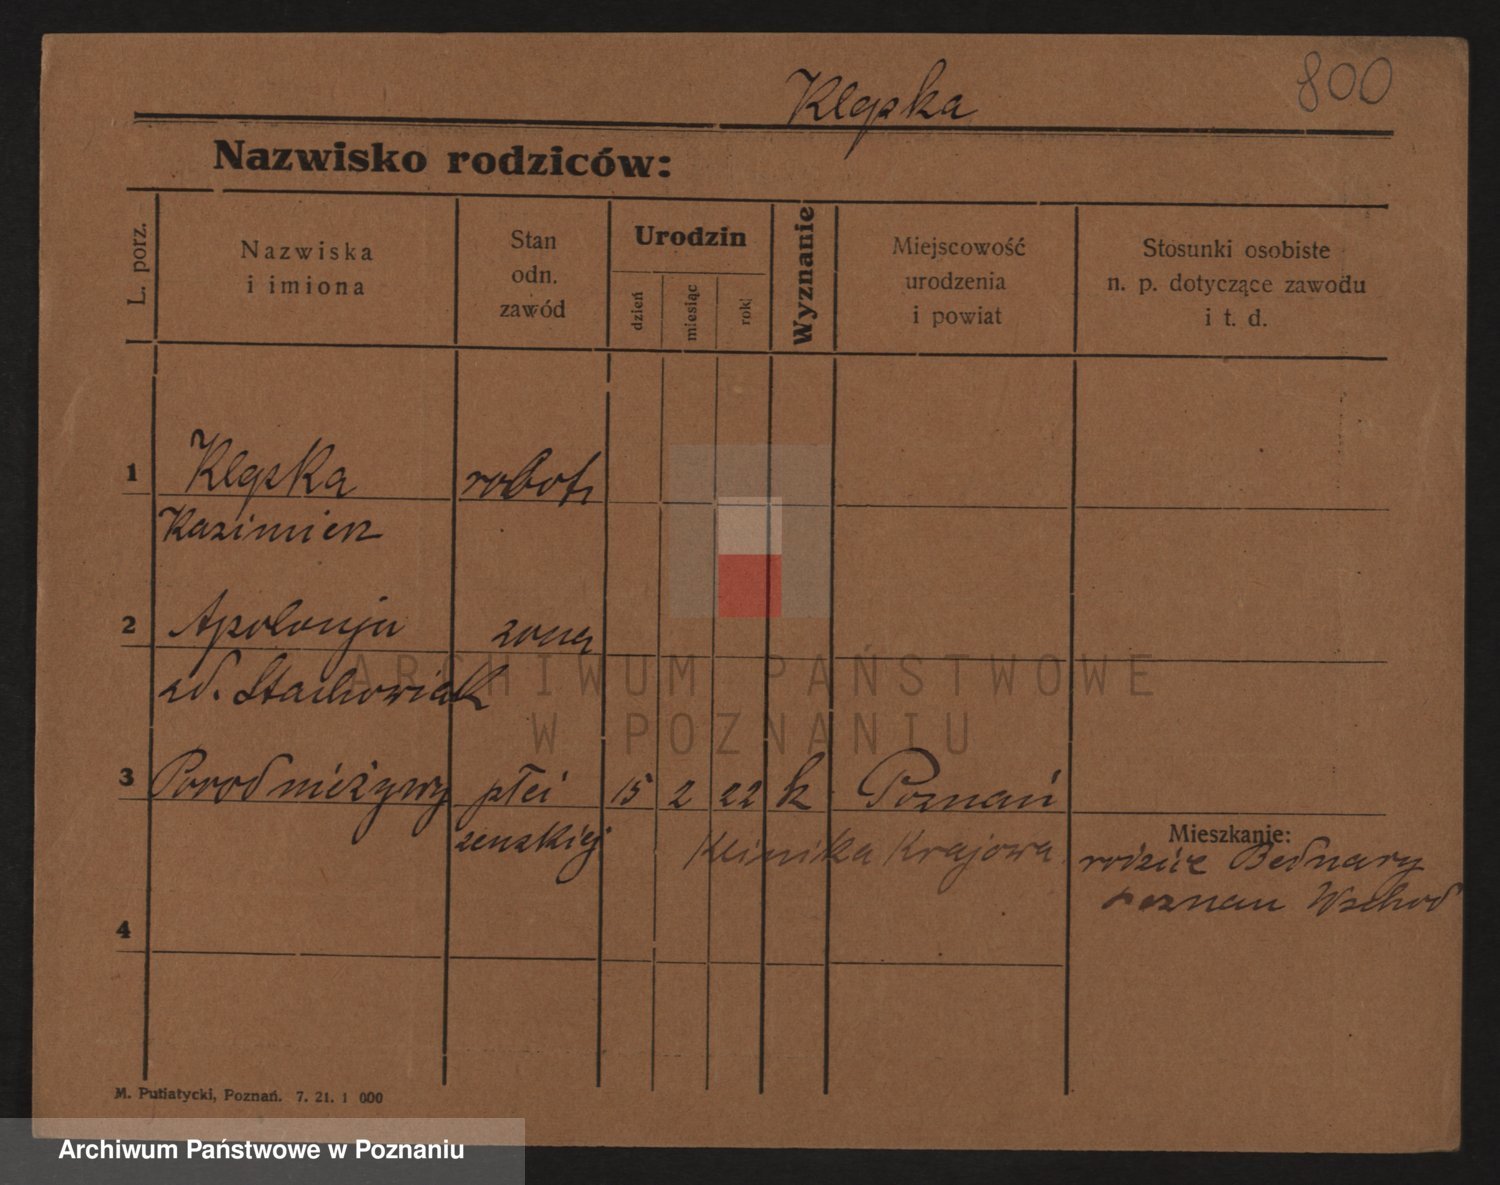 800
Klępka
Nazwisko rodziców:
L. porz.
Nazwiska
i imiona
Stan
odn.
zawód
Urodzin
dzień
miesiąc
rok
Wyznanie
Miejscowość
urodzenia
i powiat
Stosunki osobiste
n. p. dotyczące zawodu
i t. d.
1 Klępka robotn
Kazimierz
2 Apolonja żona
zd. Stachowiak
3 Porod nieżywy płci 15 2 22 k Poznań
żenskiej Klinika Krajowa
Mieszkanie:
rodzice Bednary
Poznan Wschod
4
M. Putiatycki, Poznań. 7. 21. 1 000
ARCHIWUM PAŃSTWOWE
W POZNANIU
Archiwum Państwowe w Poznaniu